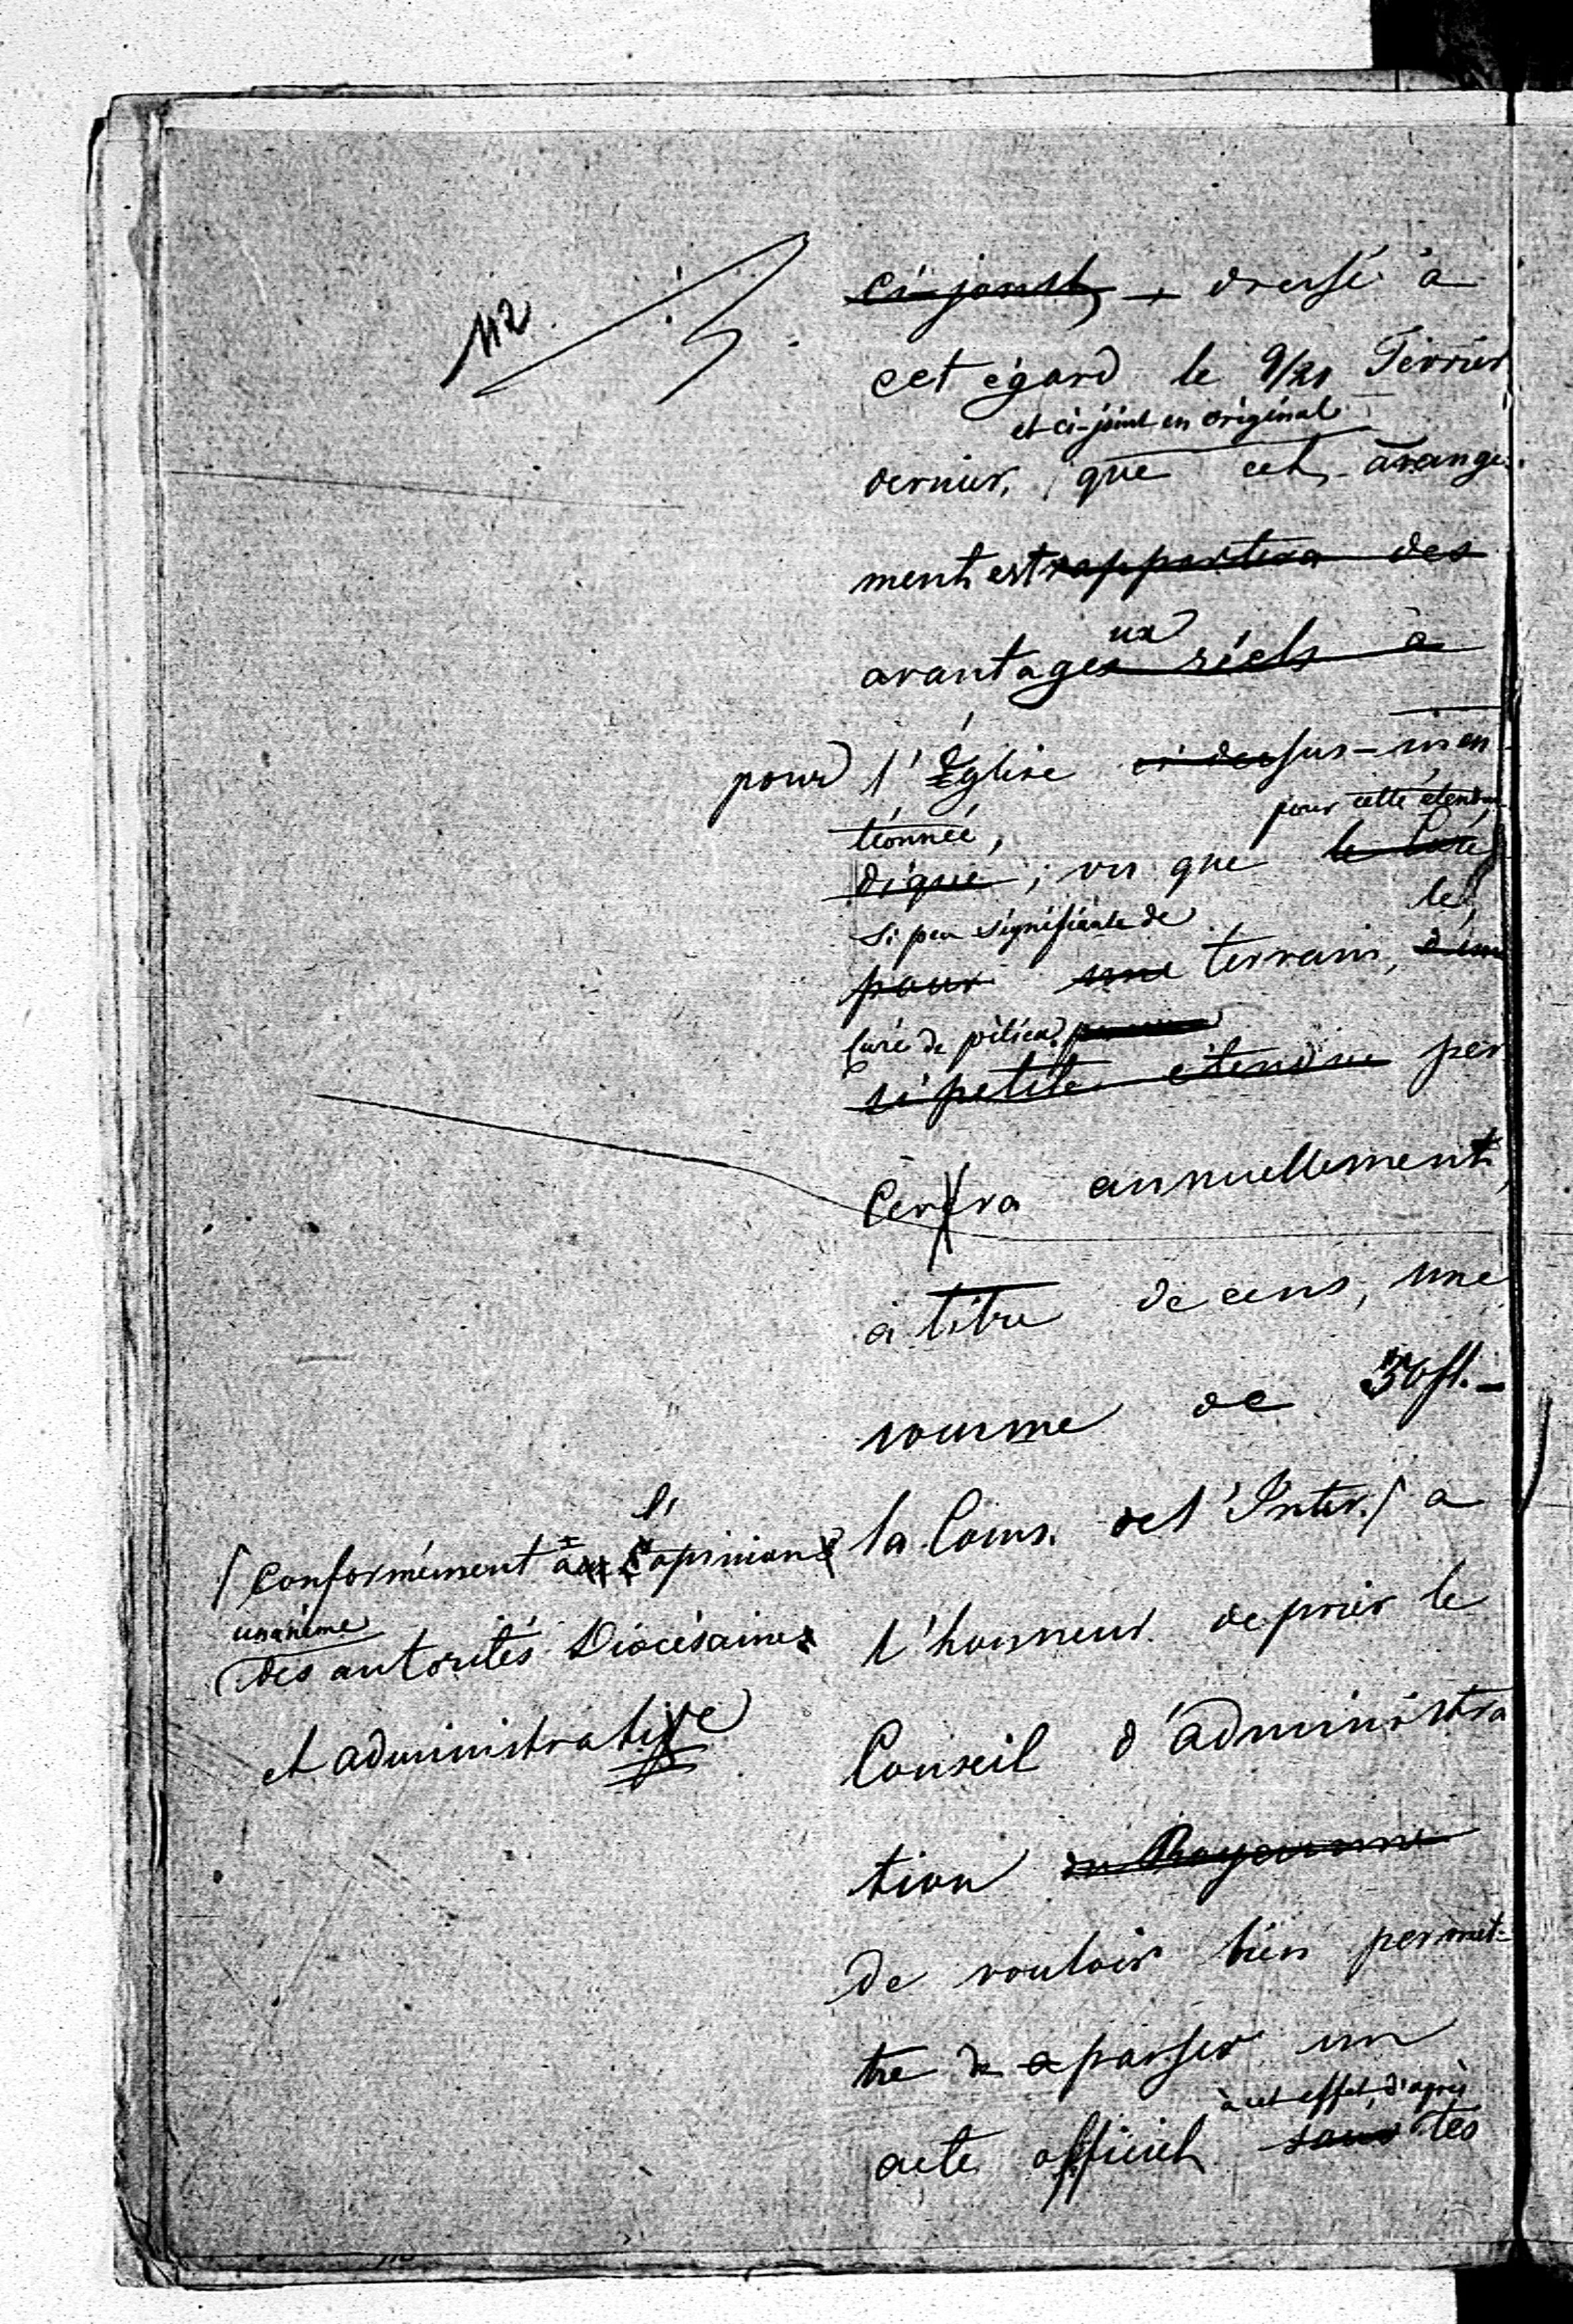 112
ci-joint, dressé à
cet égard le 9/21 Février
et ci-joint en original
dernier, que cet arange-
ment est rapportera des
ux
avantages réels à
pour l'Église ci-dessus-men
tionnée,
pour cette étendue
diquée; vu que le Curé
si peu signifiante de
le
pour une terrain, d'une
Curé de
si petite étendue per
cevra annuellement,
à titre de cens, une
somme de 30 fl. -
la Coms. de l'Inter. / a
l'
/ Conformément à l'opinion
unanime
des autorités Diocésaine
et administrative
l'honneur de prier le
Conseil d'administra
tion du Royaume
de vouloir bien permet-
tre de passer un
à cet effet, d'après
acte officiel sans les